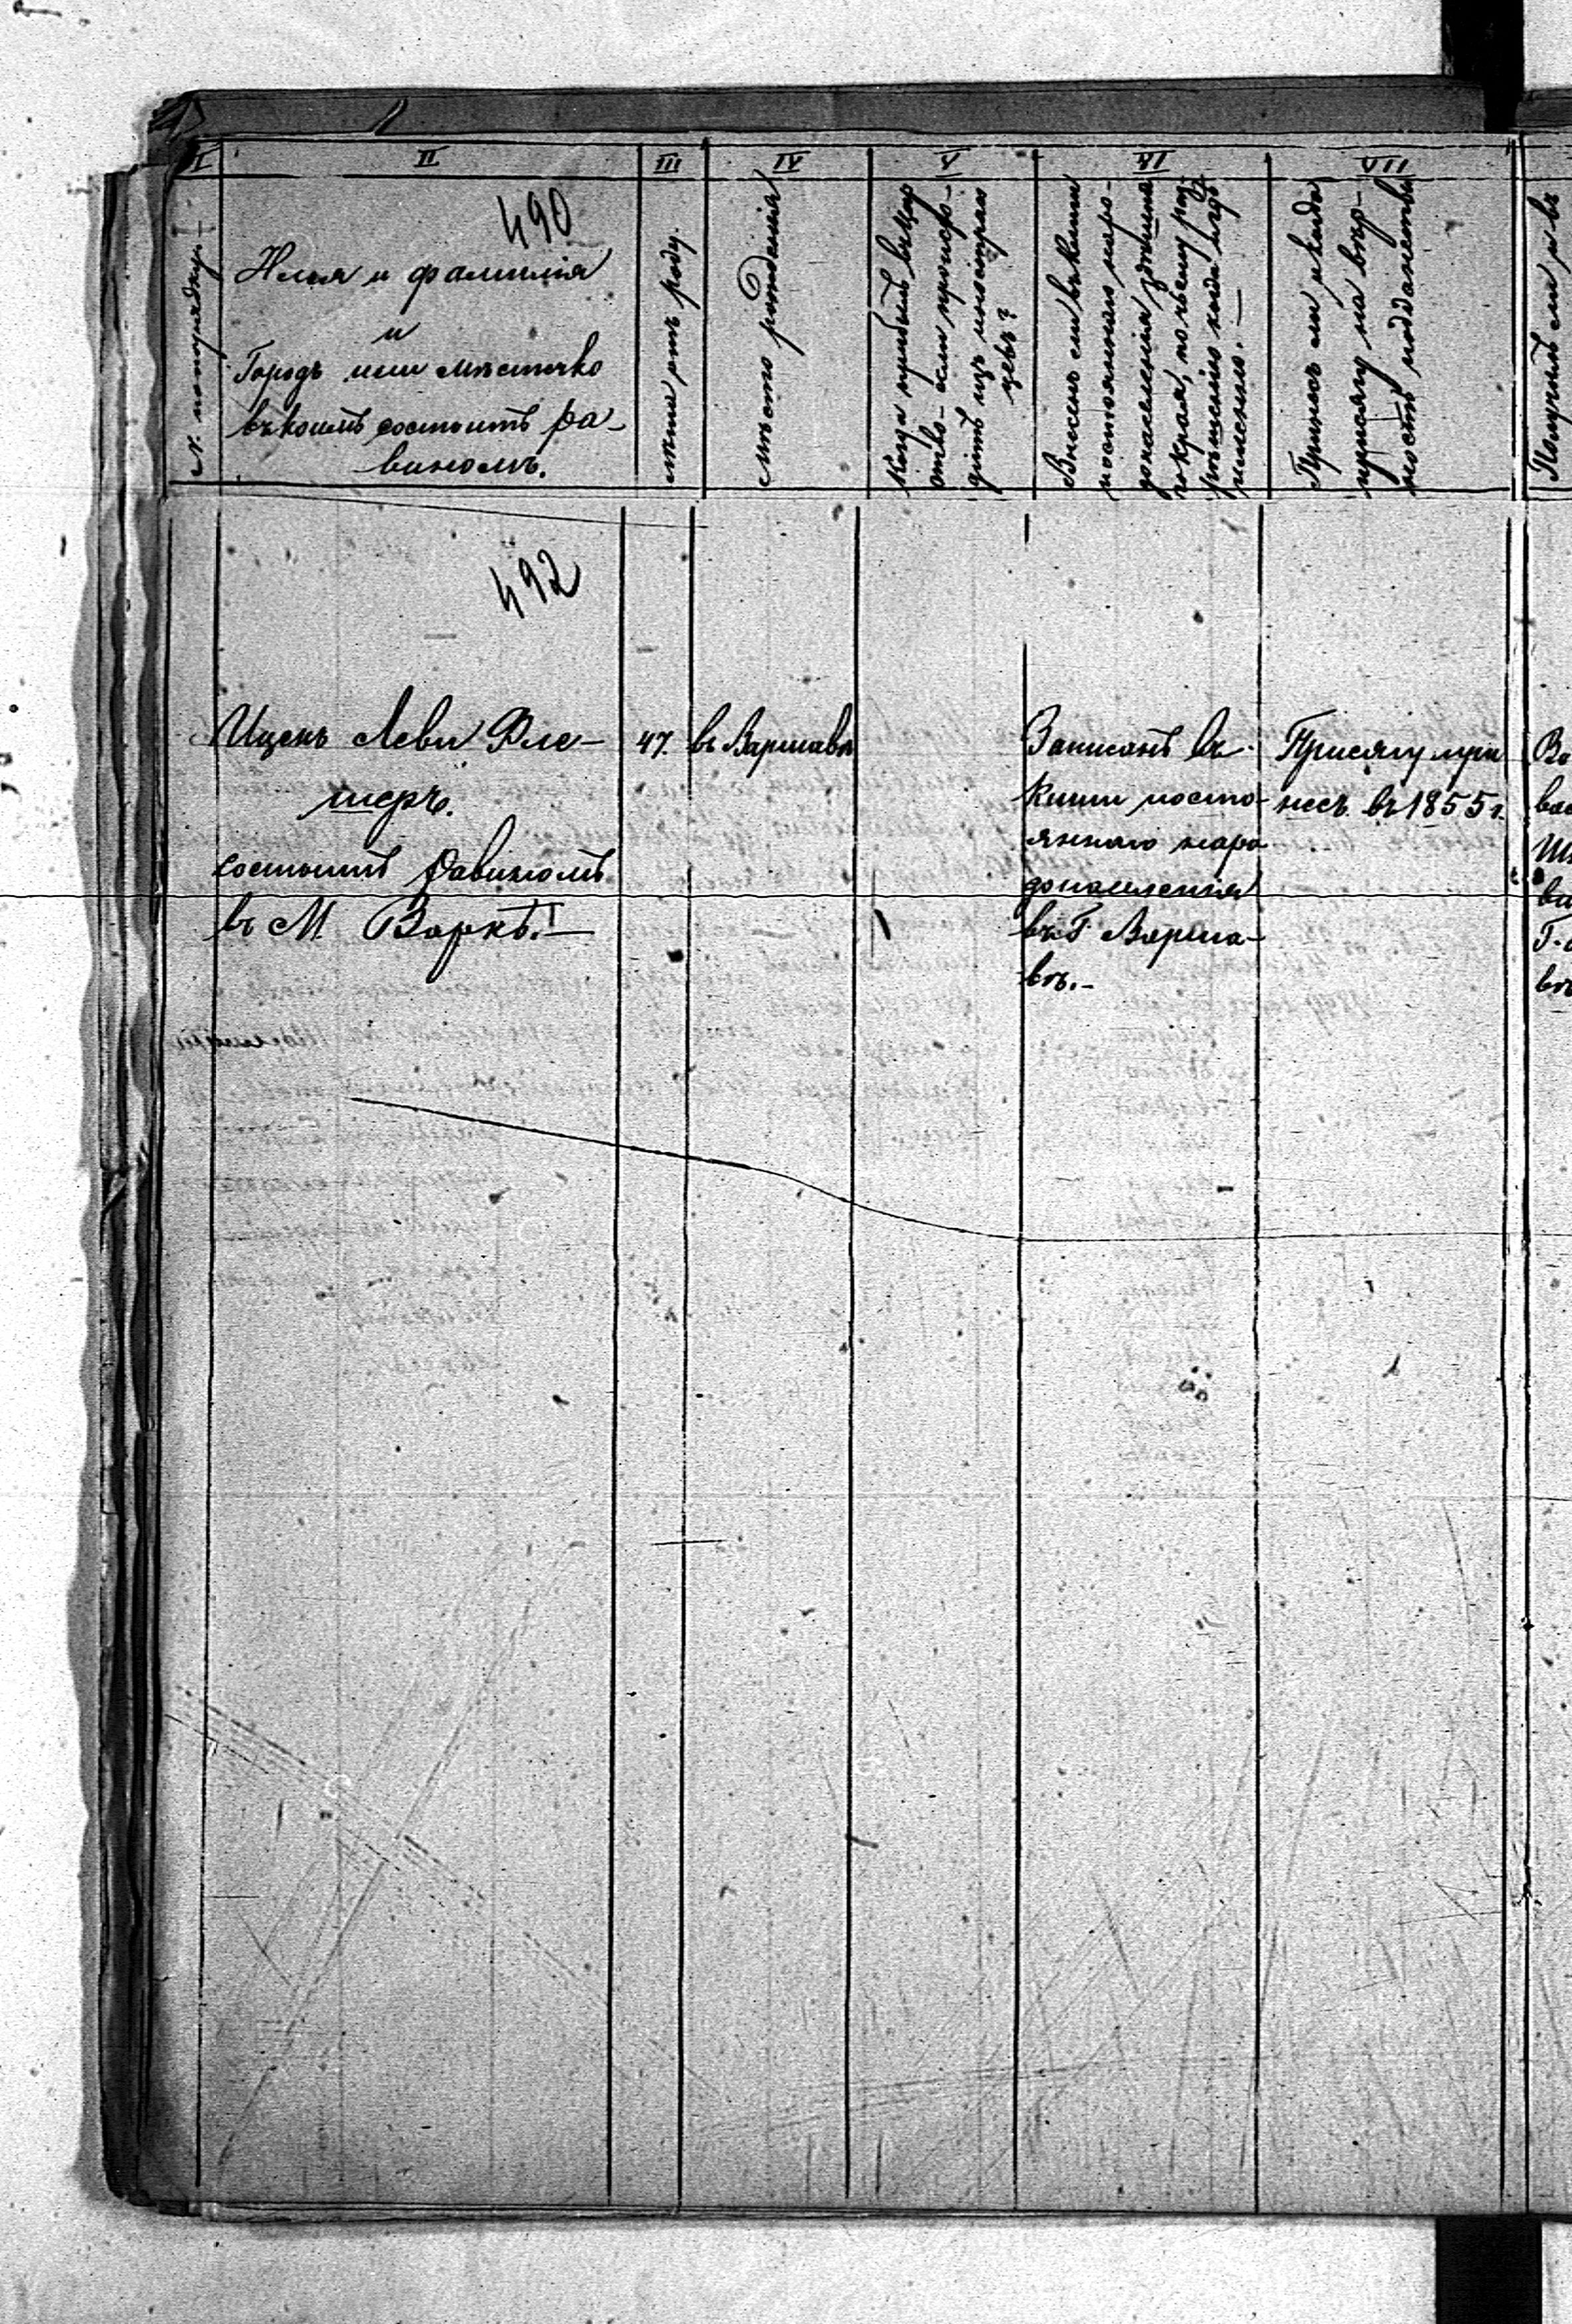 I
II
III
IV
V
VI
VII
490
№ по порядку.—
Имя и фамилія
и
Городъ или мѣстечко
въ коимъ состоитъ ра-
виномъ.
лѣта отъ роду.
Мѣсто рожденія
Когда прибылъ въ Цар
ство если происхо-
дитъ изъ иностран
цевъ?
Внесенъ ли въ книги
постояннаго наро-
донаселенія здѣшня
го края, по чьему раз-
рѣшенію когда и гдѣ
именно.—
Принесъ ли и когда
присягу на вѣр-
ность подданства
Получилъ ли и въ
492
Ицекъ Леви Фле-
шеръ.
состоитъ Равиномъ
въ М. Варкѣ.—
47.
въ Варшавѣ
Записанъ въ
книги посто-
яннаго наро
донаселенія
въ Г. Варша-
вѣ.—
Присягу при
несъ въ 1855 г.